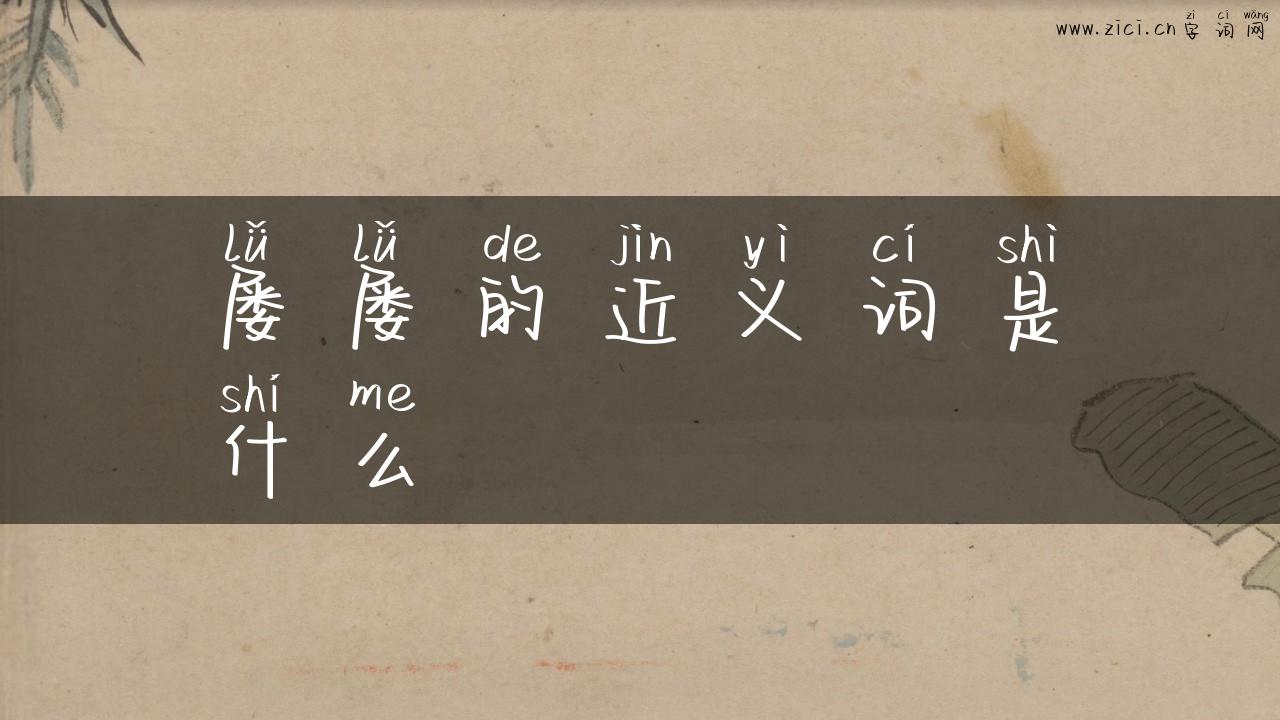 www.zici.cn zì cí wǎng
字词网
lǚ lǚ de jìn yì cí shì
屡屡的近义词是
shí me
什么